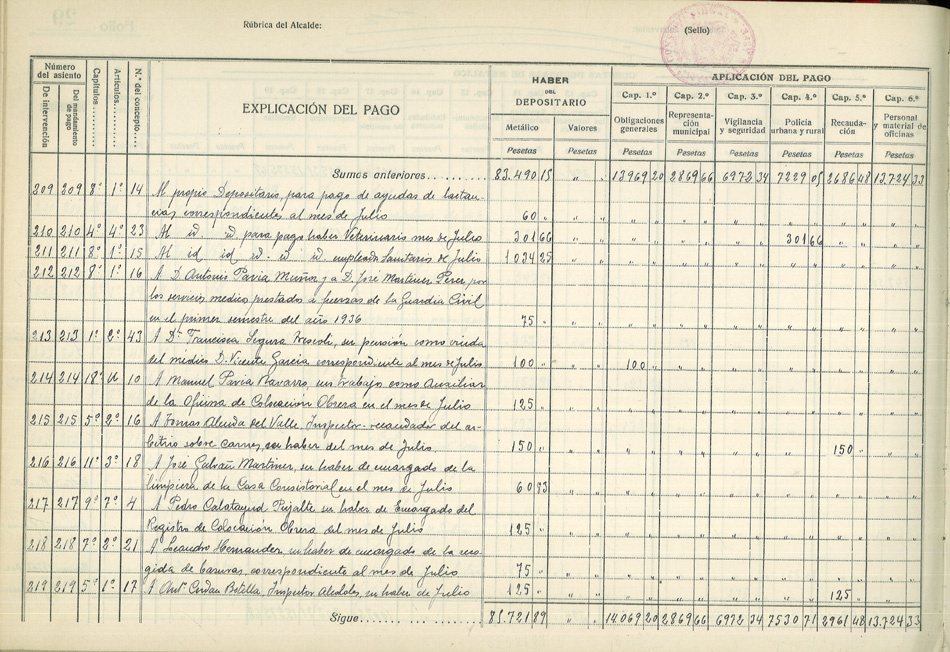 Folio 29
Rúbrica del Alcalde:
(Sello)
Número del asiento
De intervención
Del mandamiento de pago
Capítulos
Artículos
N.º del concepto
EXPLICACIÓN DEL PAGO
HABER DEL DEPOSITARIO
Metálico Pesetas
Valores Pesetas
APLICACIÓN DEL PAGO
Cap. 1.º Obligaciones generales Pesetas
Cap. 2.º Representación municipal Pesetas
Cap. 3.º Vigilancia y seguridad Pesetas
Cap. 4.º Policía urbana y rural Pesetas
Cap. 5.º Recaudación Pesetas
Cap. 6.º Personal y material de oficinas Pesetas
Sumas anteriores 83.490 15 " " 13969 20 2869 66 6972 34 7229 05 2686 48 13.724 33
209 209 8º 1º 14 Al propio Depositario, para pago de ayudas de lactan-
cias correspondientes al mes de Julio 60 "
210 210 4º 4º 23 Al id id para pago haber Veterinario mes de Julio 301 66 301 66
211 211 8º 1º 15 Al id id id id id empleados Sanitarios de Julio 1034 25
212 212 8º 1º 16 A D. Antonio Pavia Muñoz y a D. José Martinez Perez, por
los servicios medicos prestados a fuerzas de la Guardia Civil
en el primer semestre del año 1936 75 "
213 213 1º 2º 43 A Dª Francisca Segura, su pensión como viuda
del médico D. Vicente Garcia correspondiente al mes de Julio 100 " 100 "
214 214 18º u 10 A Manuel Pavia Navarro, su trabajo como Auxiliar
de la Oficina de Colocación Obrera en el mes de Julio 125 "
215 215 5º 2º 16 A Tomas Alenda del Valle, Inspector-recaudador del ar-
bitrio sobre carnes, su haber del mes de Julio. 150 " 150 "
216 216 11º 3º 18 A José Galvañ Martinez, su haber de encargado de la
limpieza de la Casa Consistorial en el mes de Julio 60 83
217 217 9º 7º 4 A Pedro Calatayud Pujalte su haber de Encargado del
Registro de Colocación Obrera del mes de Julio 125 "
218 218 7º 2º 21 A Leandro Hernandez, su haber de encargado de la reco-
gida de basuras, correspondiente al mes de Julio 75 "
219 219 5º 1º 17 A Antº Cerdan Botella, Inspector Alcoholes, su haber de Julio 125 " 125 "
Sigue 85.721 89 " " 14.069 20 2869 66 6972 34 7530 71 2961 48 13.724 33